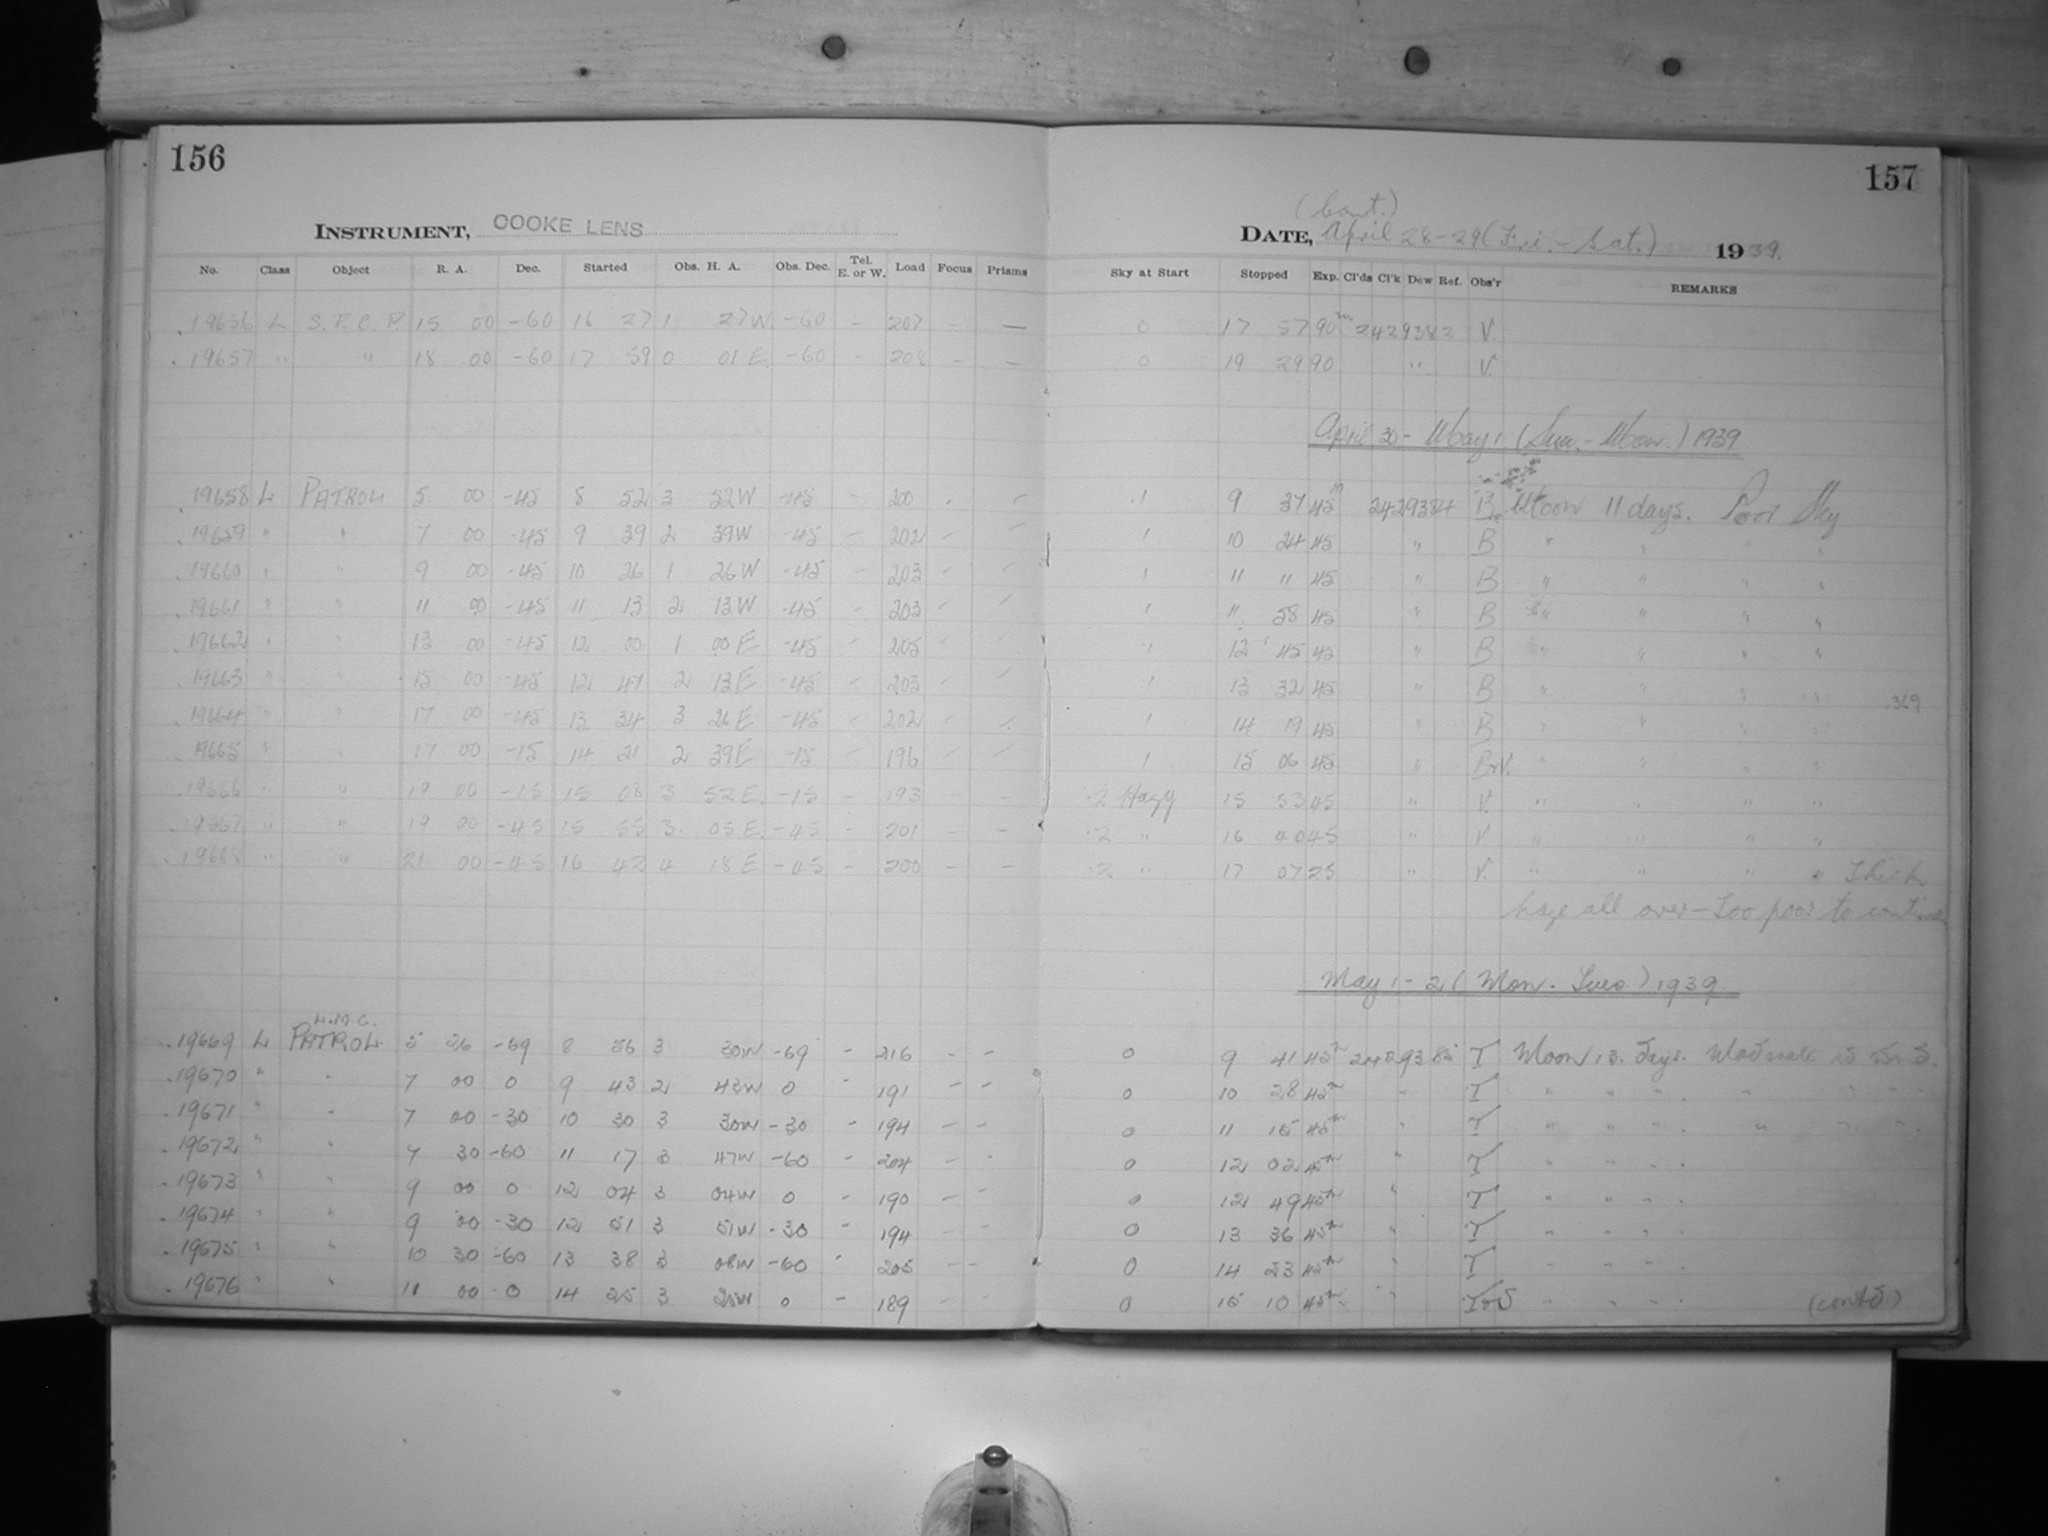 156
157
INSTRUMENT, COOKE LENS
(Cont.)
DATE, April 28-29 (Fri. - Sat.) 1939.
No. Class Object R. A. Dec. Started Obs. H. A. Obs. Dec. Tel. E. or W. Load Focus Prisms Sky at Start Stopped Exp. Cl'ds Cl'k Dew Ref. Obs'r REMARKS
19656 L S.F.C.P. 15 00 -60 16 27 1 27 W -60 - 207 - - 0 17 57 90m 2429382 V.
19657 " " 18 00 -60 17 59 0 01 E -60 - 208 - - 0 19 29 90 " V.
April 30 - May 1 (Sun. - Mon.) 1939
19658 L PATROL 5 00 -45 8 52 3 52 W -45 - 200 - - .1 9 37 45m 2429384 B Moon 11 days. Poor Sky
19659 " " 7 00 -45 9 39 2 39 W -45 - 202 - - 1 10 24 45 " B " " " "
19660 " " 9 00 -45 10 26 1 26 W -45 - 203 - - 1 11 11 45 " B " " " "
19661 " " 11 00 -45 11 13 2 13 W -45 - 203 - - 1 11 58 45 " B " " " "
19662 " " 13 00 -45 12 00 1 00 E -45 - 205 - - 1 12 45 45 " B " " " "
19663 " " 15 00 -45 12 47 2 13 E -45 - 203 - - 1 13 32 45 " B " " " "
.369
19664 " " 17 00 -45 13 34 3 26 E -45 - 202 - - 1 14 19 45 " B " " " "
19665 " " 17 00 -15 14 21 2 39 E -15 - 196 - - 1 15 06 45 " B+V. " " " "
19666 " " 19 00 -15 15 08 3 52 E -15 - 193 - - .2 Hazy 15 53 45 " V. " " " "
19667 " " 19 00 -45 15 55 3 05 E -45 - 201 - - .2 " 16 40 45 " V " " " "
19668 " " 21 00 -45 16 42 4 18 E -45 - 200 - - .2 " 17 07 25 " V. " " " " Thick
haze all over - Too poor to continue
May 1-2 (Mon. Tues.) 1939.
L.M.C.
19669 L PATROL 5 26 -69 8 56 3 30 W -69 - 216 - - 0 9 41 45m 2429385 T Moon 13 days.
19670 " " 7 00 0 9 43 2 43 W 0 - 191 - - 0 10 28 45m " T " " "
19671 " " 7 00 -30 10 30 3 30 W -30 - 194 - - 0 11 15 45m " T " " "
19672 " " 7 30 -60 11 17 3 47 W -60 - 204 - - 0 12 02 45m " T " " "
19673 " " 9 00 0 12 04 3 04 W 0 - 190 - - 0 12 49 45m " T " " "
19674 " " 9 00 -30 12 51 3 51 W -30 - 194 - - 0 13 36 45m " T " " "
19675 " " 10 30 -60 13 38 3 08 W -60 - 205 - - 0 14 23 45m " T " " "
19676 " " 11 00 0 14 25 3 25 W 0 - 189 - - 0 15 10 45m " " " " (contd)